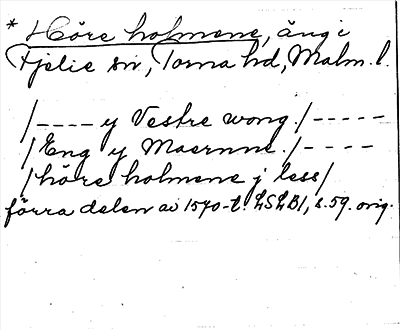 * Höre holmene, äng i
Fjelie sn, Torna hd, Malm. l.
/---- y Vestre wong./-----
/Eng y Maernne./----
/höre holmene j less/
förra delen av 1570-t. LSLB1, s. 59. orig.